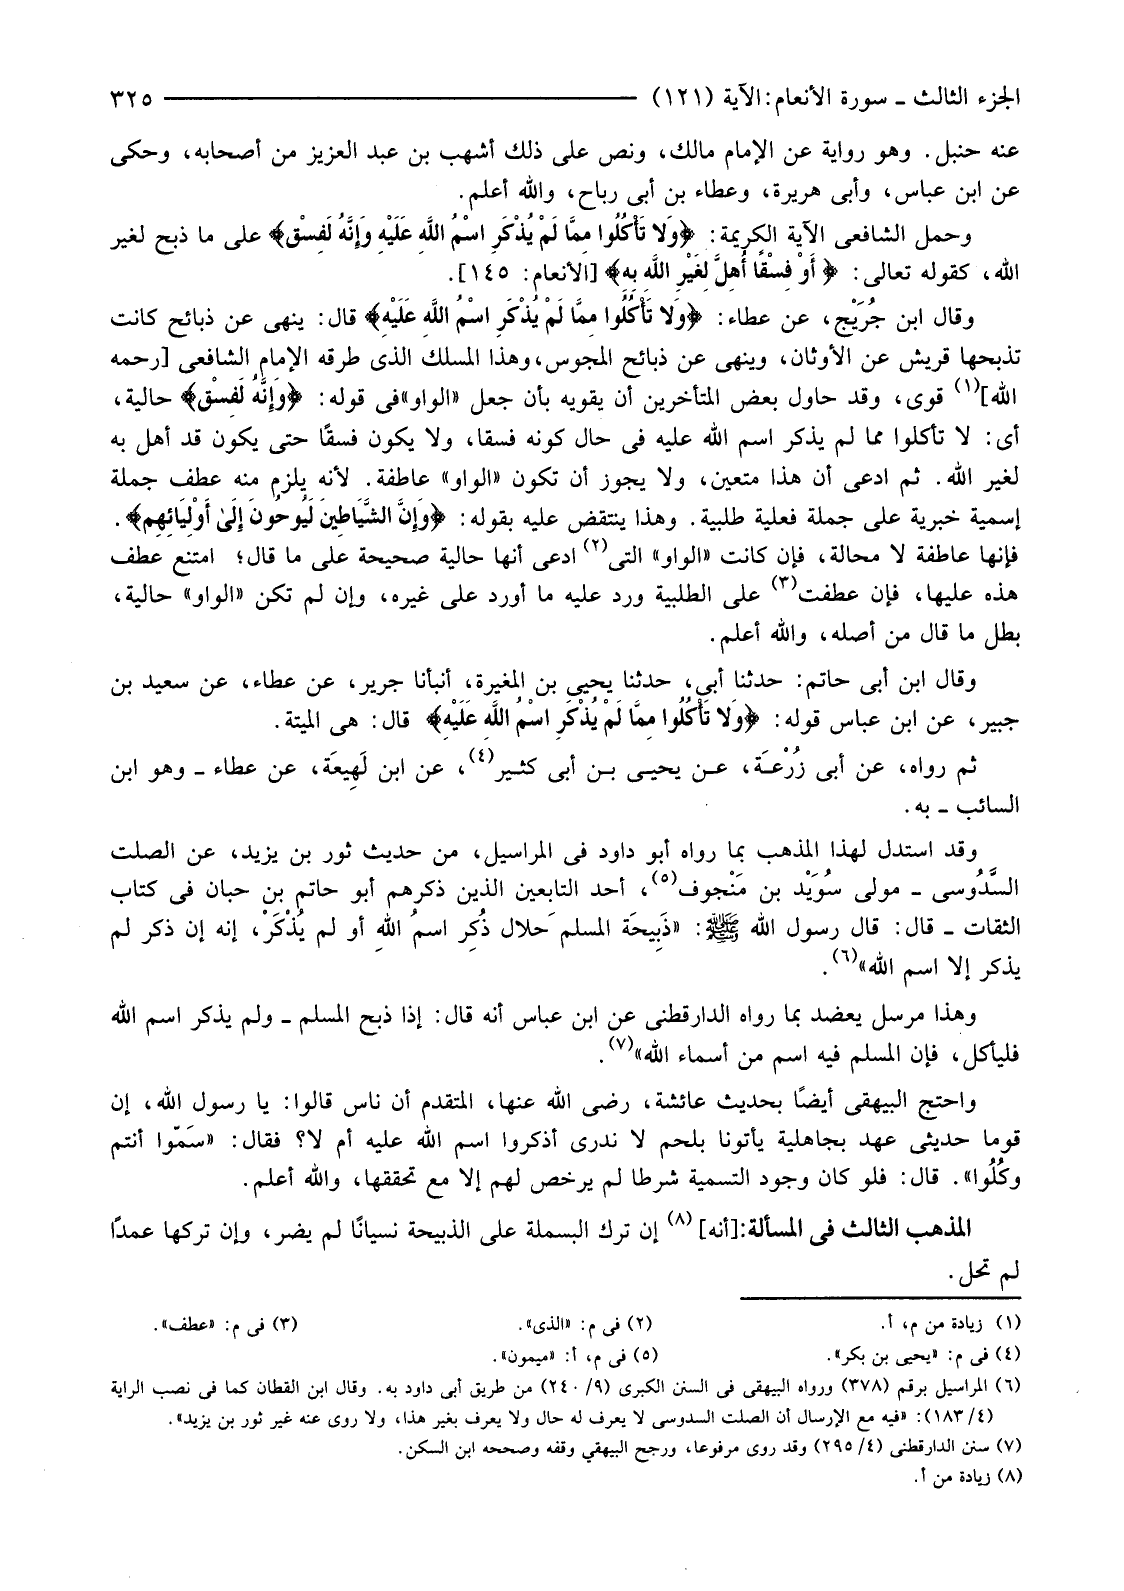 الجزء الثالث ـ سورة الأنعام: الآية (١٢١) ٣٢٥
عنه حنبل. وهو رواية عن الإمام مالك، ونص على ذلك أشهب بن عبد العزيز من أصحابه، وحكى
عن ابن عباس، وأبى هريرة، وعطاء بن أبى رباح، والله أعلم.
وحمل الشافعى الآية الكريمة: ﴿وَلا تَأْكُلُوا مِمَّا لَمْ يُذْكَرِ اسْمُ اللَّهِ عَلَيْهِ وَإِنَّهُ لَفِسْق﴾ على ما ذبح لغير
الله، كقوله تعالى: ﴿ أَوْ فِسْقًا أُهِلَّ لِغَيْرِ اللَّهِ بِهِ﴾ [الأنعام: ١٤٥].
وقال ابن جُرَيْج، عن عطاء: ﴿وَلا تَأْكُلُوا مِمَّا لَمْ يُذْكَرِ اسْمُ اللَّهِ عَلَيْهِ﴾ قال: ينهى عن ذبائح كانت
تذبحها قريش عن الأوثان، وينهى عن ذبائح المجوس، وهذا المسلك الذى طرقه الإمام الشافعى [رحمه
الله](١) قوى، وقد حاول بعض المتأخرين أن يقويه بأن جعل «الواو»فى قوله: ﴿وَإِنَّهُ لَفِسْق﴾ حالية،
أى: لا تأكلوا مما لم يذكر اسم الله عليه فى حال كونه فسقا، ولا يكون فسقًا حتى يكون قد أهل به
لغير الله. ثم ادعى أن هذا متعين، ولا يجوز أن تكون «الواو» عاطفة. لأنه يلزم منه عطف جملة
إسمية خبرية على جملة فعلية طلبية. وهذا ينتقض عليه بقوله: ﴿وَإِنَّ الشَّيَاطِينَ لَيُوحُونَ إِلَىٰ أَوْلِيَائِهِم﴾.
فإنها عاطفة لا محالة، فإن كانت «الواو» التى(٢) ادعى أنها حالية صحيحة على ما قال؛ امتنع عطف
هذه عليها، فإن عطفت(٣) على الطلبية ورد عليه ما أورد على غيره، وإن لم تكن «الواو» حالية،
بطل ما قال من أصله، والله أعلم.
وقال ابن أبى حاتم: حدثنا أبي، حدثنا يحيى بن المغيرة، أنبأنا جرير، عن عطاء، عن سعيد بن
جبير، عن ابن عباس قوله: ﴿وَلا تَأْكُلُوا مِمَّا لَمْ يُذْكَرِ اسْمُ اللَّهِ عَلَيْهِ﴾ قال: هى الميتة.
ثم رواه، عن أبى زُرْعَة، عن يحيى بن أبى كثير(٤)، عن ابن لَهِيعَة، عن عطاء ـ وهو ابن
السائب ـ به.
وقد استدل لهذا المذهب بما رواه أبو داود فى المراسيل، من حديث ثور بن يزيد، عن الصلت
السَّدُوسى ـ مولى سُوَيْد بن مَنْجوف(٥)، أحد التابعين الذين ذكرهم أبو حاتم بن حبان فى كتاب
الثقات ـ قال: قال رسول الله ﷺ: «ذَبِيحَة المسلم حَلال ذُكِر اسمُ اللهِ أو لم يُذْكَرْ، إنه إن ذكر لم
يذكر إلا اسم الله»(٦).
وهذا مرسل يعضد بما رواه الدارقطنى عن ابن عباس أنه قال: إذا ذبح المسلم ـ ولم يذكر اسم الله
فليأكل، فإن المسلم فيه اسم من أسماء الله»(٧).
واحتج البيهقى أيضًا بحديث عائشة، رضى الله عنها، المتقدم أن ناس قالوا: يا رسول الله، إن
قوما حديثى عهد بجاهلية يأتونا بلحم لا ندرى أذكروا اسم الله عليه أم لا؟ فقال: «سَمّوا أنتم
وكُلُوا». قال: فلو كان وجود التسمية شرطا لم يرخص لهم إلا مع تحققها، والله أعلم.
المذهب الثالث فى المسألة:[أنه](٨) إن ترك البسملة على الذبيحة نسيانًا لم يضر، وإن تركها عمدًا
لم تحل.
(١) زيادة من م، أ. (٢) فى م: «الذى». (٣) فى م: «عطف».
(٤) فى م: «يحيى بن بكر». (٥) فى م، أ: «ميمون».
(٦) المراسيل برقم (٣٧٨) ورواه البيهقى فى السنن الكبرى (٩/ ٢٤٠) من طريق أبى داود به. وقال ابن القطان كما فى نصب الراية
(٤/ ١٨٣): «فيه مع الإرسال أن الصلت السدوسى لا يعرف له حال ولا يعرف بغير هذا، ولا روى عنه غير ثور بن يزيد».
(٧) سنن الدارقطنى (٤/ ٢٩٥) وقد روى مرفوعا، ورجح البيهقي وقفه وصححه ابن السكن.
(٨) زيادة من أ.